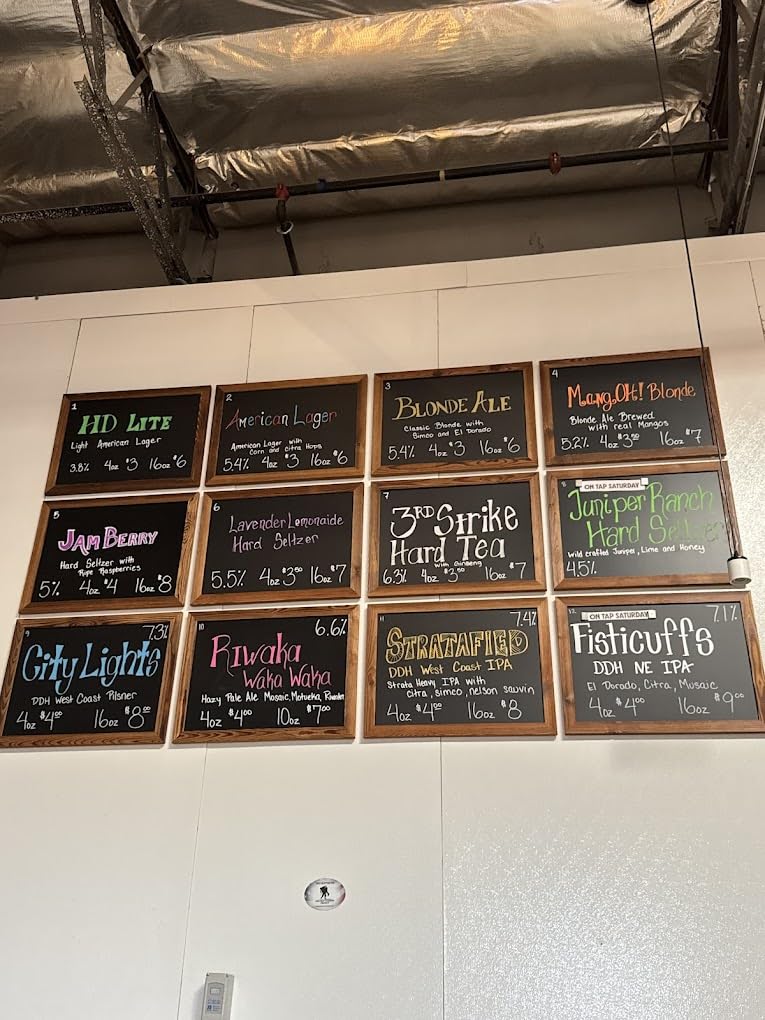 1
HD LITE
Light American Lager
3.8% 4oz $3 16oz $6
2
American Lager
American Lager with
Corn and Citra Hops
5.4% 4oz $3 16oz $6
3
BLONDE ALE
Classic Blonde with
Simco and El Dorado
5.4% 4oz $3 16oz $6
4
Mang.OH! Blonde
Blonde Ale Brewed
with real Mangos
5.2% 4oz $3.50 16oz $7
5
JAM BERRY
Hard Seltzer with
Ripe Raspberries
5% 4oz $4 16oz $8
6
Lavender Lemonaide
Hard Seltzer
5.5% 4oz $3.50 16oz $7
7
3RD Strike
Hard Tea
with Ginseng
6.3% 4oz $3.50 16oz $7
8
ON TAP SATURDAY
Juniper Ranch
Hard Seltzer
Wild crafted Juniper, Lime and Honey
4.5%
9
7.3%
City Lights
DDH West Coast Pilsner
4oz $4.00 16oz $8.00
10
6.6%
Riwaka
Waka Waka
Hazy Pale Ale Mosaic, Motueka, Riwaka
4oz $4.00 10oz $7.00
11
7.4%
STRATAFIED
DDH West Coast IPA
Strata Heavy IPA with
Citra, Simco, nelson sauvin
4oz $4.00 16oz $8
12
ON TAP SATURDAY
7.1%
Fisticuffs
DDH NE IPA
El Dorado, Citra, Mosaic
4oz $4.00 16oz $9.00